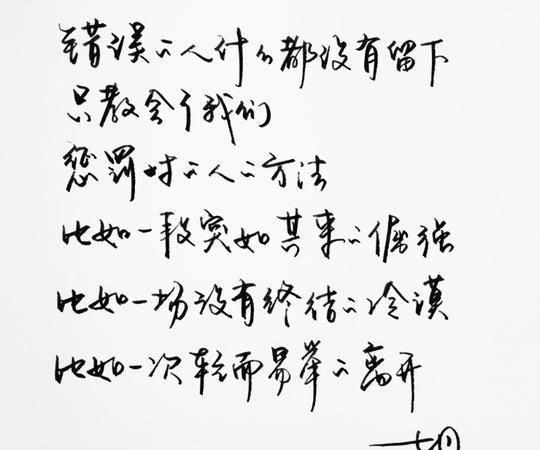 错误的人什么都没有留下
只教会了我们
惩罚对的人的方法
比如一段突如其来的倔强
比如一场没有终结的冷漠
比如一次轻而易举的离开